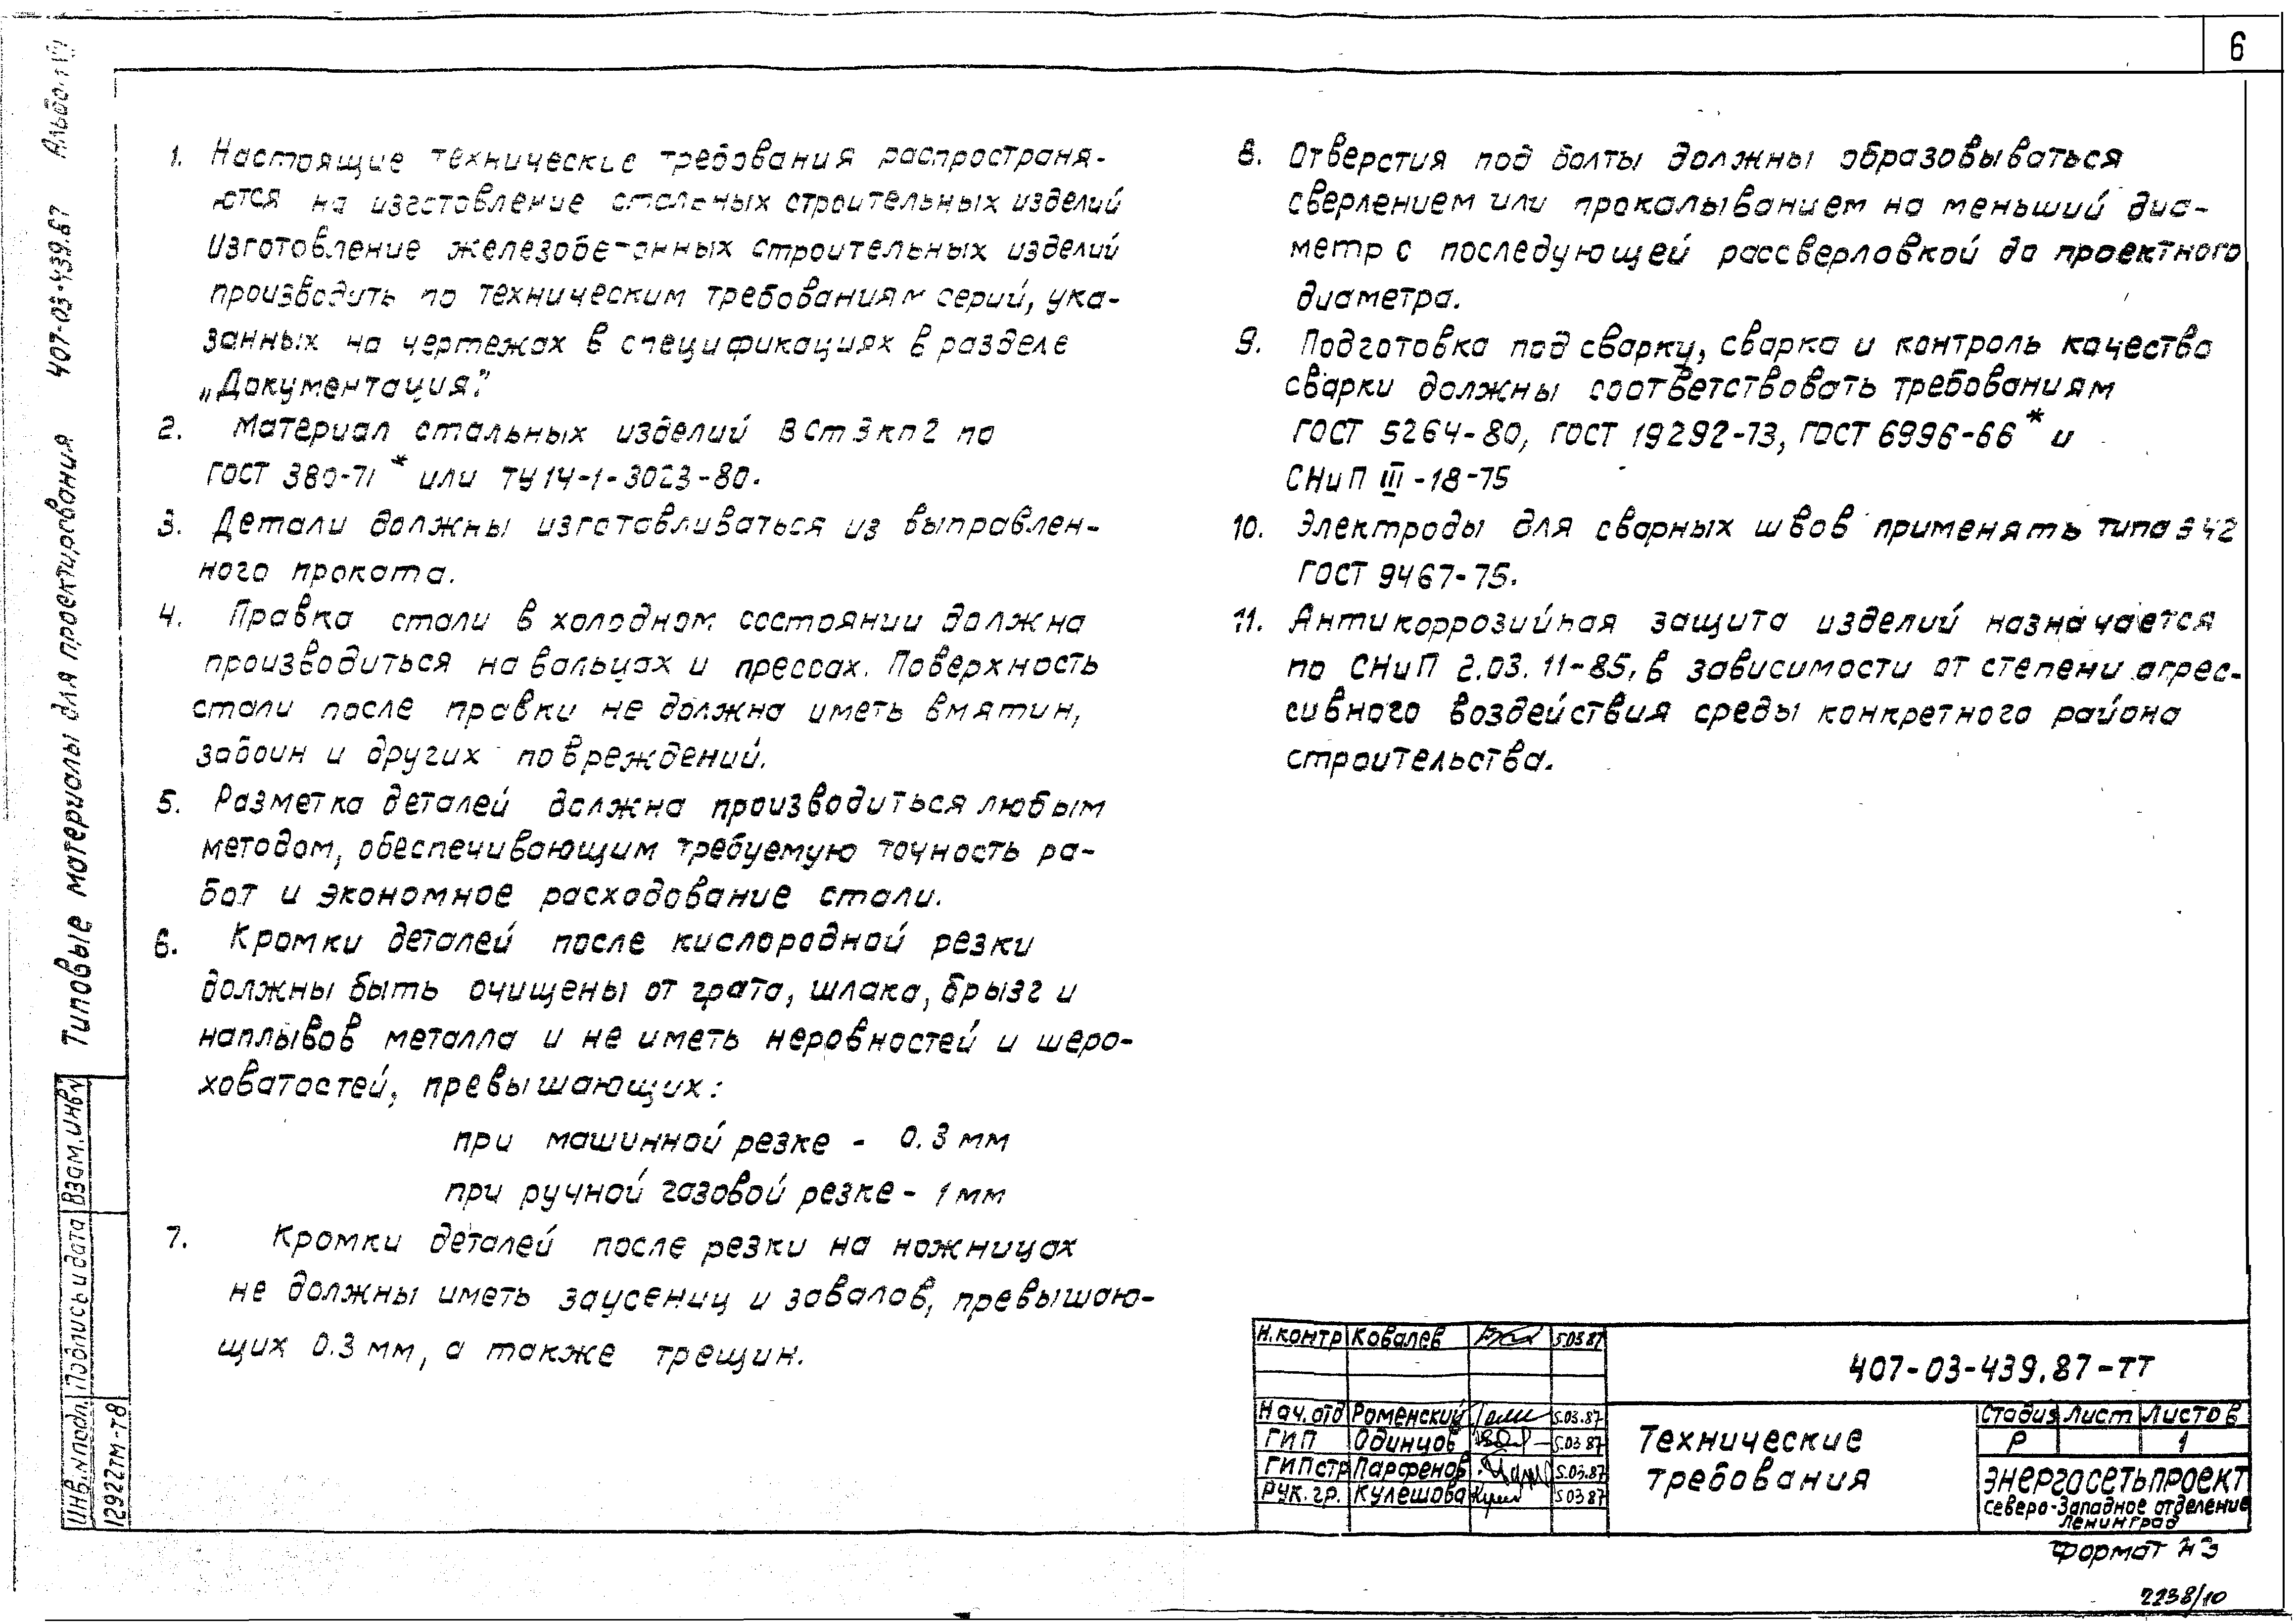 6
Типовые материалы для проектирования 407-03-439.87 Альбом
1. Настоящие технические требования распространя-
ются на изготовление стальных строительных изделий
Изготовление железобетонных строительных изделий
производить по техническим требованиям серий, ука-
занных на чертежах в спецификациях в разделе
„Документация."
2. Материал стальных изделий ВСт3кп2 по
ГОСТ 380-71* или ТУ14-1-3023-80.
3. Детали должны изготавливаться из выправлен-
ного проката.
4. Правка стали в холодном состоянии должна
производиться на вальцах и прессах. Поверхность
стали после правки не должна иметь вмятин,
забоин и других повреждений.
5. Разметка деталей должна производиться любым
методом, обеспечивающим требуемую точность ра-
бот и экономное расходование стали.
6. Кромки деталей после кислородной резки
должны быть очищены от грата, шлака, брызг и
наплывов металла и не иметь неровностей и шеро-
ховатостей, превышающих:
при машинной резке - 0.3 мм
при ручной газовой резке - 1 мм
7. Кромки деталей после резки на ножницах
не должны иметь заусениц и завалов, превышаю-
щих 0.3 мм, а также трещин.
8. Отверстия под болты должны образовываться
сверлением или прокалыванием на меньший диа-
метр с последующей рассверловкой до проектного
диаметра.
9. Подготовка под сварку, сварка и контроль качества
сварки должны соответствовать требованиям
ГОСТ 5264-80, ГОСТ 19292-73, ГОСТ 6996-66* и
СНиП III-18-75
10. Электроды для сварных швов применять типа Э42
ГОСТ 9467-75.
11. Антикоррозийная защита изделий назначается
по СНиП 2.03.11-85, в зависимости от степени агрес-
сивного воздействия среды конкретного района
строительства.
Взам. инв.№
Подпись и дата
Инв.№подл.
12922тм-т8
Н.контр Ковалев 5.03.87
Нач.отд Роменский 5.03.87
ГИП Одинцов 5.03.87
ГИПстр Парфенов 5.03.87
Рук.гр. Кулешова 5.03.87
407-03-439.87-ТТ
Технические
требования
Стадия Лист Листов
Р 1
ЭНЕРГОСЕТЬПРОЕКТ
Северо-Западное отделение
Ленинград
Формат А3
2238/10